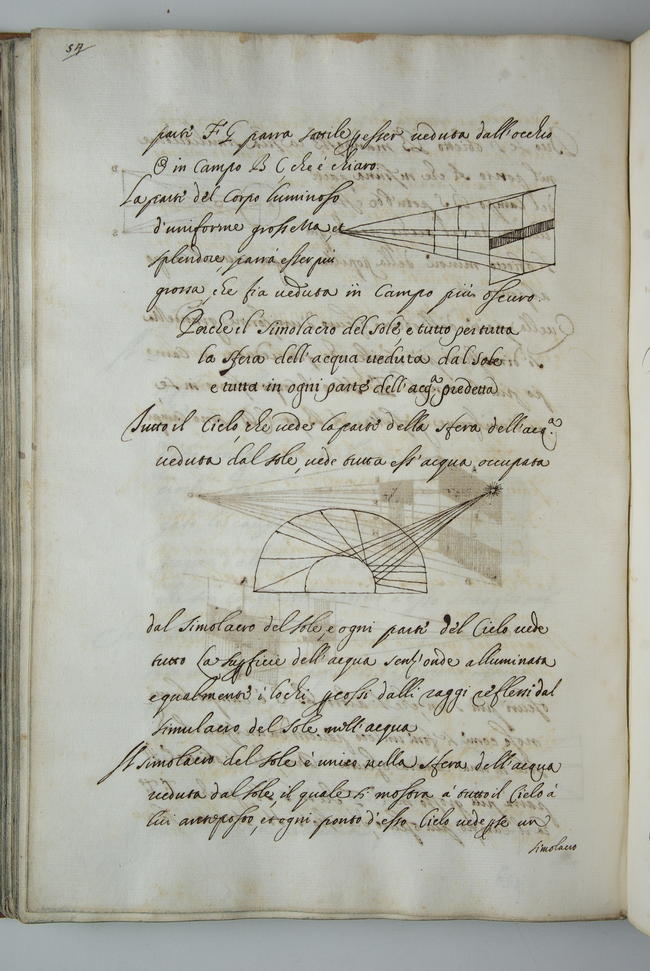 54
parte F G parra sottile p esser veduta dall'occhio
in Campo B C che è chiaro.
La parte del Corpo luminoso
d'uniforme grossezza, et
splendore, parrà esser più
grossa, che fia veduta in Campo più oscuro.
Perche il Simolacro del Sole è tutto per tutta
la sfera dell'acqua veduta dal Sole
e tutta in ogni parte dell'acq.a predetta
Tutto il Cielo, che vede la parte della sfera dell'acq.a
veduta dal Sole, vede tutta ess'acqua occupata
dal Simolacro del Sole, e ogni parte del Cielo vede
tutto la supficie dell'acqua senz'onde alluminata
egualmente i lochi pcossi dalli raggi reflessi dal
Simulacro del Sole nell'acqua
Il simolacro del Sole è unico nella sfera dell'acqua
veduta dal Sole, il quale si mostra a tutto il Cielo à
lui anteposto, et ogni ponto d'esso Cielo vede p se un
simolacro